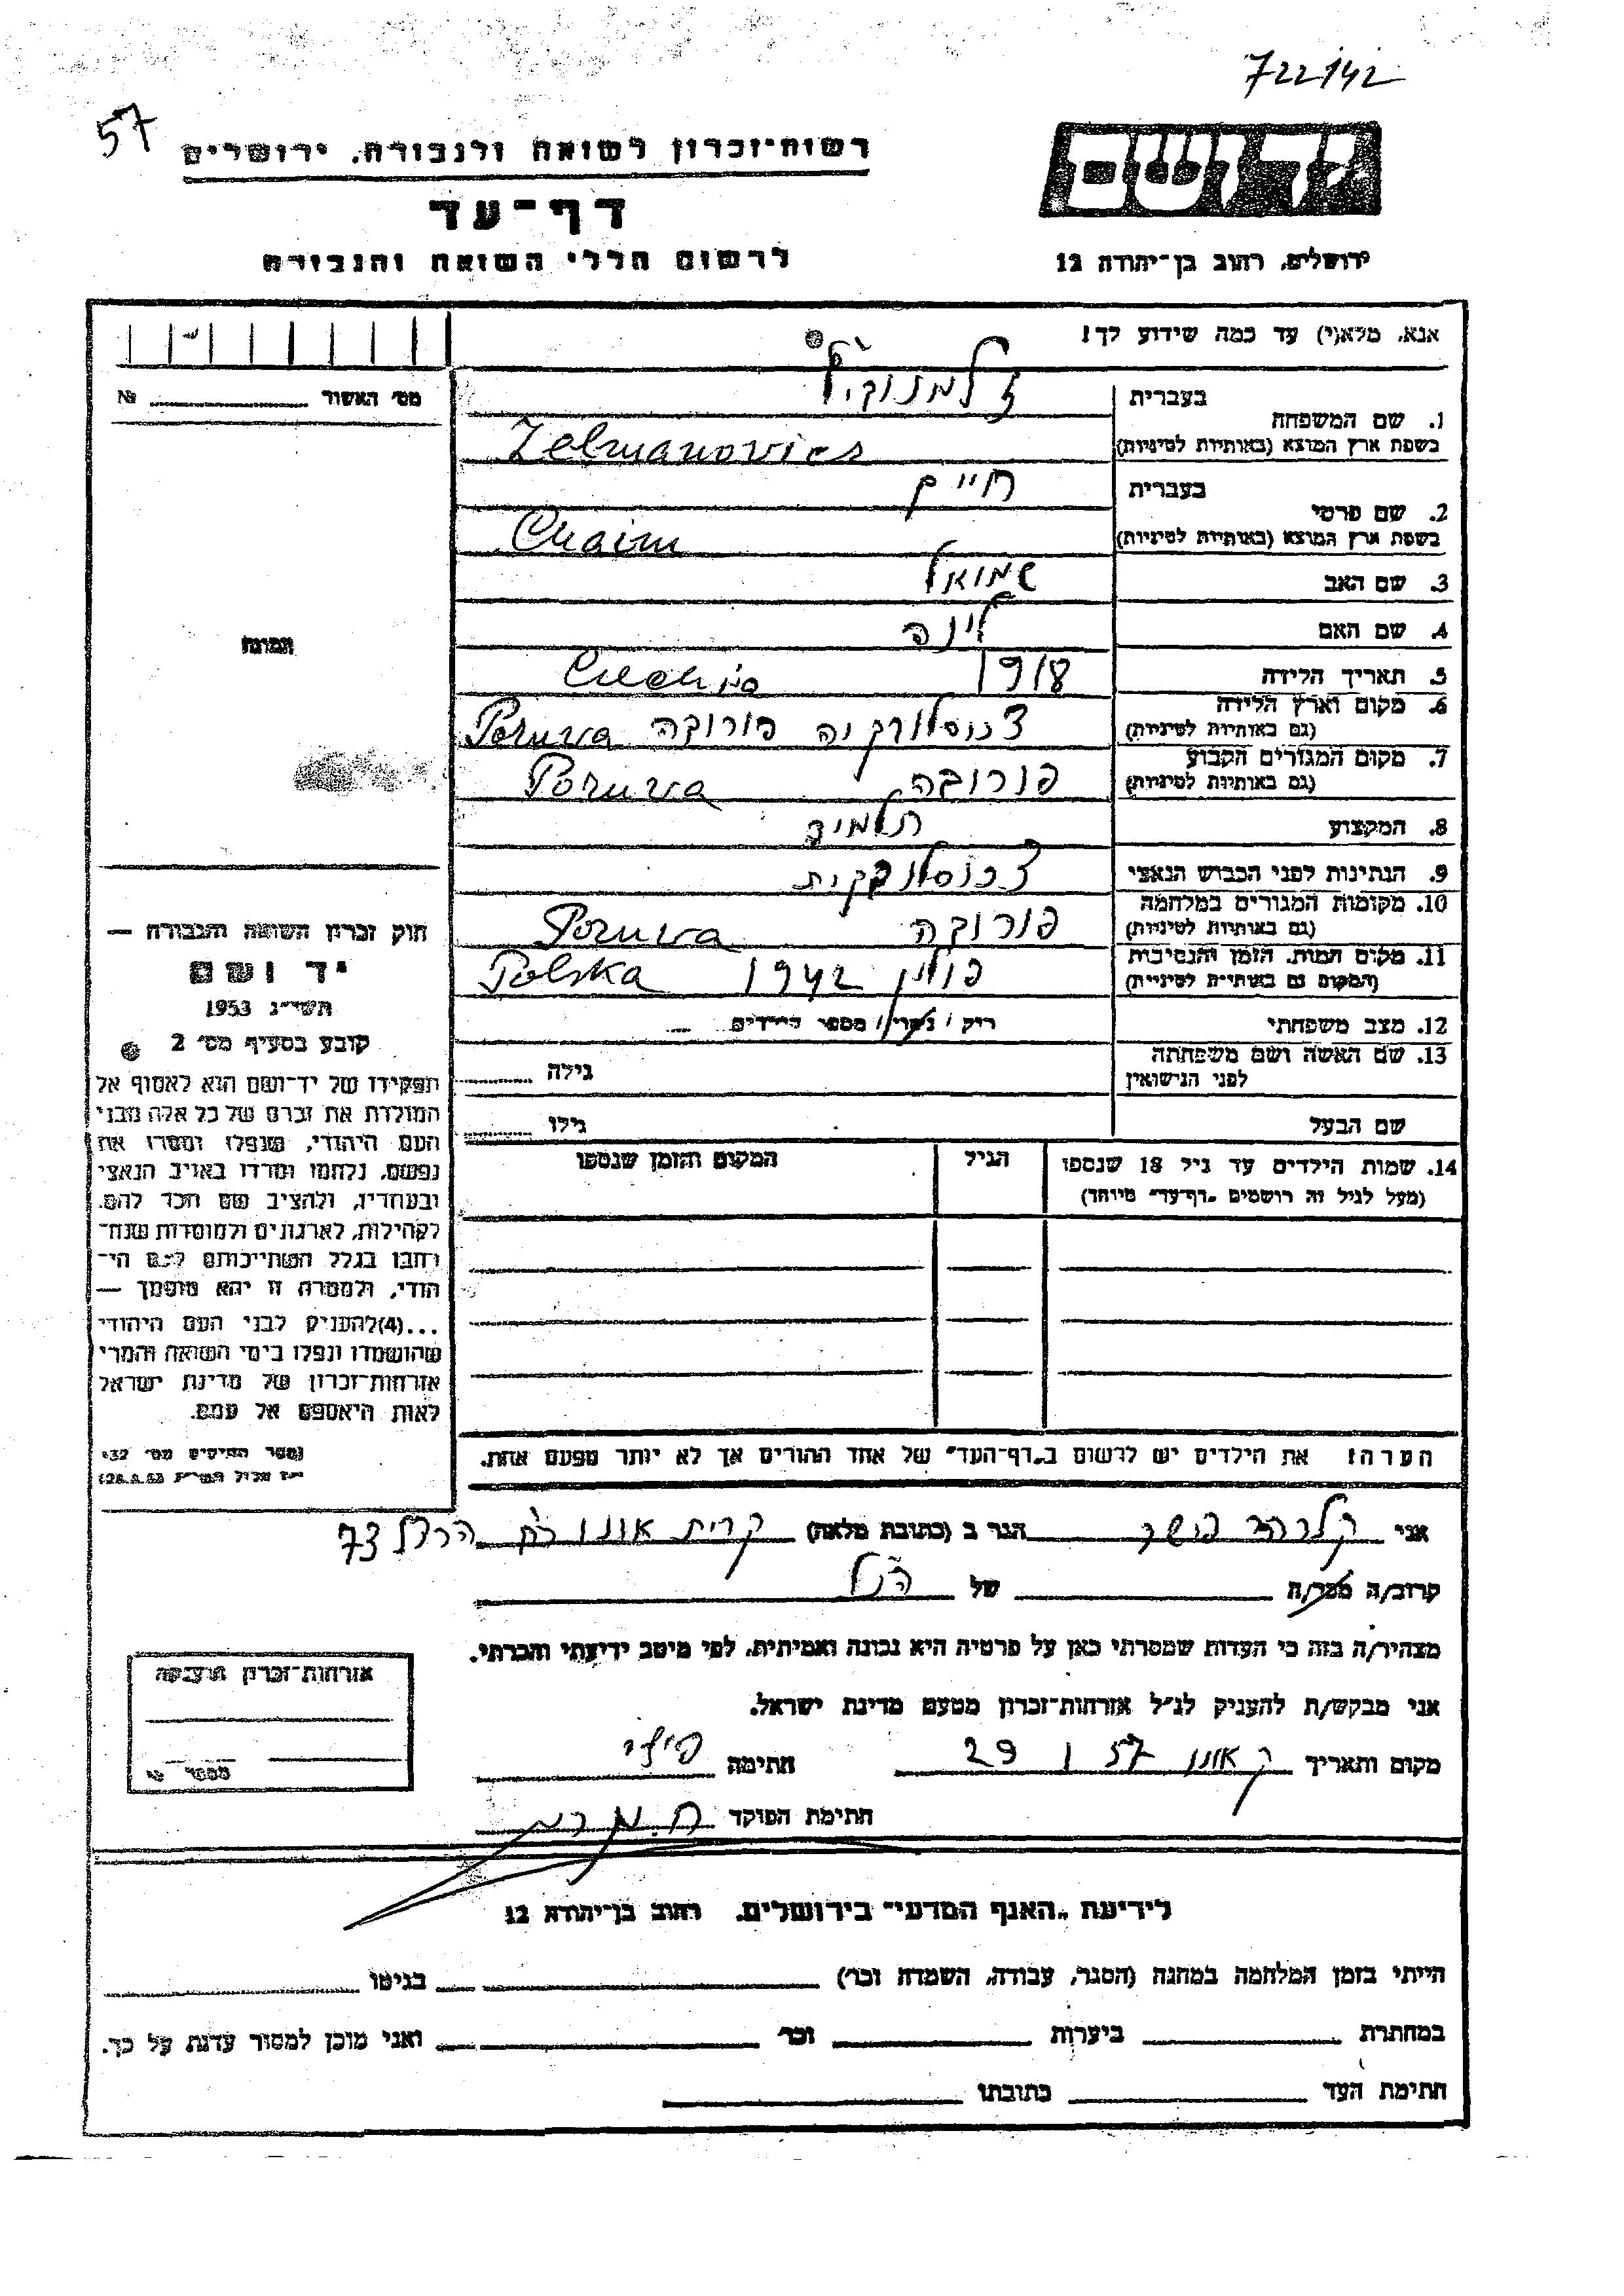 722142
57
רשות-זכרון לשואה ולגבורה, ירושלים
דף-עד
לרשום חללי השואה והגבורה
ירושלים, רחוב בן-יהודה 12
אנא, מלא(י) עד כמה שידוע לך!
מס' האשור № 
1. שם המשפחה
בעברית
בשפת ארץ המוצא (באותיות לטיניות)
Zelmanovics
2. שם פרטי
בעברית חיים
בשפת ארץ המוצא (באותיות לטיניות) Chaim
3. שם האב שמואל
4. שם האם לינה
5. תאריך הלידה 1918
6. מקום וארץ הלידה
(גם באותיות לטיניות) פורובה Poruva
7. מקום המגורים הקבוע
(גם באותיות לטיניות) פורובה Poruva
8. המקצוע תלמיד
9. הנתינות לפני הכבוש הנאצי
10. מקומות המגורים במלחמה
(גם באותיות לטיניות) פורובה Poruva
11. מקום המות, הזמן והנסיבות
(המקום גם באותיות לטיניות) פולין 1942 Polska
12. מצב משפחתי רוק / נשוי / מספר הילדים
13. שם האשה ושם משפחתה
לפני הנישואין גילה
שם הבעל גילו
14. שמות הילדים עד גיל 18 שנספו
(מעל לגיל זה רושמים "דף-עד" מיוחד)
הגיל
המקום והזמן שנספו
הערה: את הילדים יש לרשום ב"דף-העד" של אחד ההורים אך לא יותר מפעם אחת.
התמונה
חוק זכרון השואה והגבורה —
יד ושם
תשי"ג 1953
קובע בסעיף מס' 2
תפקידו של יד-ושם הוא לאסוף אל
המולדת את זכרם של כל אלה מבני
העם היהודי, שנפלו ומסרו את
נפשם, נלחמו ומרדו באויב הנאצי
ובעוזריו, ולהציב שם וזכר להם,
לקהילות, לארגונים ולמוסדות שנח-
רבו בגלל השתייכותם לעם הי-
הודי, ולמטרה זו יהא מוסמך —
...(4)להעניק לבני העם היהודי
שהושמדו ונפלו בימי השואה והמרי
אזרחות-זכרון של מדינת ישראל
לאות היאספם אל עמם.
אני פישר הגר ב (כתובת מלאה) קרית אונו רח הרצל 73
קרוב/ה מכר/ה של הנ"ל
מצהיר/ה בזה כי העדות שמסרתי כאן על פרטיה היא נכונה ואמיתית, לפי מיטב ידיעתי והכרתי.
אני מבקש/ת להעניק לנ"ל אזרחות-זכרון מטעם מדינת ישראל.
מקום ותאריך ק אונו 29 I 57 חתימה
חתימת הפוקד
אזרחות-זכרון הוענקה
מספר
לידיעת "האגף המדעי" בירושלים, רחוב בן-יהודה 12
הייתי בזמן המלחמה במחנה (הסגר, עבודה, השמדה וכו') בגיטו
במחתרת ביערות וכו' ואני מוכן למסור עדות על כך.
חתימת העד כתובתו